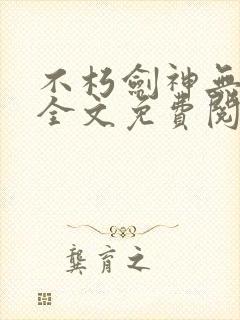 不朽劍神無
全文免費閱
龔育之